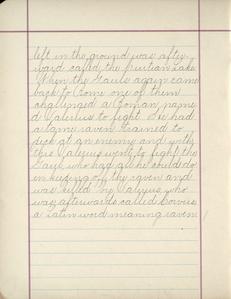 left in the ground was after
ward called the Curtian Lake
When the Gauls again came
back to Rome one of them
challenged a Roman name
d Valerius to fight. He had
a tame raven trained to
pick at an enemy and with
this Valerius went to fight the
Gaul who had all he could do
in keeping off the raven and
was killed by Valerius who
was afterwards called Corvus
a Latin word meaning raven